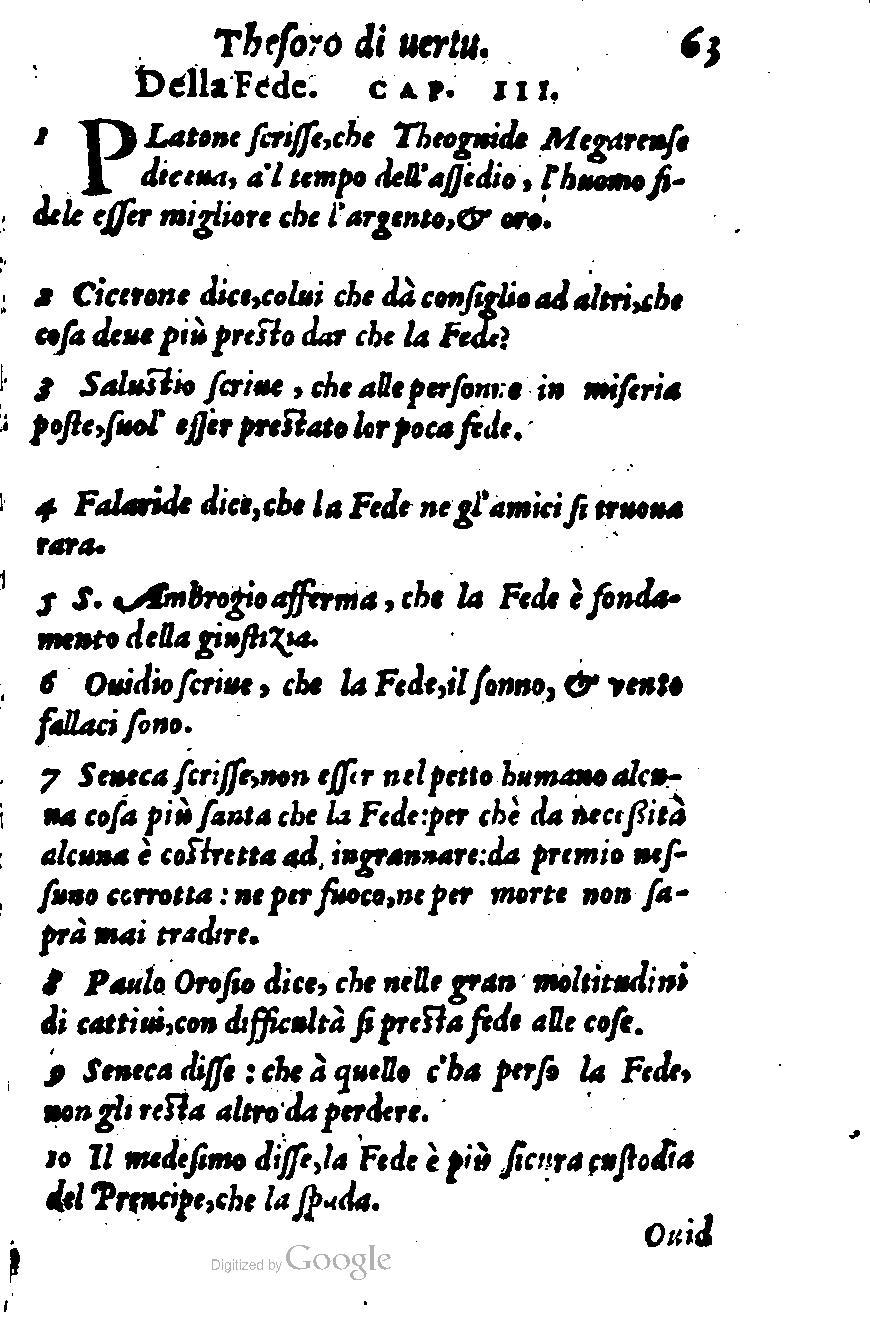 Thesoro di uertu. 63
Della Fede. CAP. III.
1 PLatone scrisse, che Theognide Megarense
diceua, a'l tempo dell'assedio, l'huomo fi-
dele esser migliore che l'argento, & oro.
2 Cicerone dice, colui che dà consiglio ad altri, che
cosa deue più presto dar che la Fede?
3 Salustio scriue, che alle persone in miseria
poste, suol' esser prestato lor poca fede.
4 Falaride dice, che la Fede ne gl'amici si truoua
rara.
5 S. Ambrogio afferma, che la Fede è fonda-
mento della giustizia.
6 Ouidio scriue, che la Fede, il sonno, & vento
fallaci sono.
7 Seneca scrisse, non esser nel petto humano alcu-
na cosa più santa che la Fede: per chè da necessità
alcuna è costretta ad ingrannare: da premio nes-
suno corrotta: ne per fuoco, ne per morte non sa-
prà mai tradire.
8 Paulo Orosio dice, che nelle gran moltitudini
di cattiui, con difficultà si presta fede alle cose.
9 Seneca disse: che à quello c'ha perso la Fede,
non gli resta altro da perdere.
10 Il medesimo disse, la Fede è più sicura custodia
del Prencipe, che la spada.
Ouid
Digitized by Google